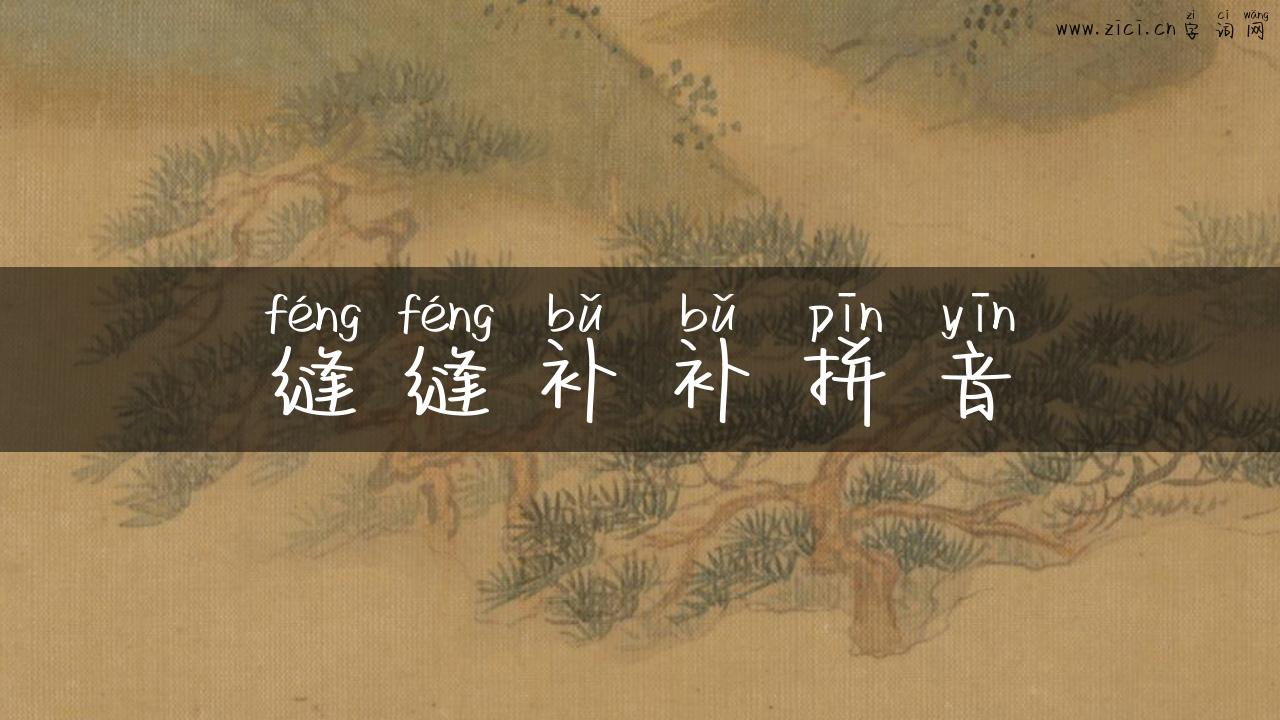 zì cí wǎng
www.zici.cn 字词网
féng féng bǔ bǔ pīn yīn
缝缝补补拼音